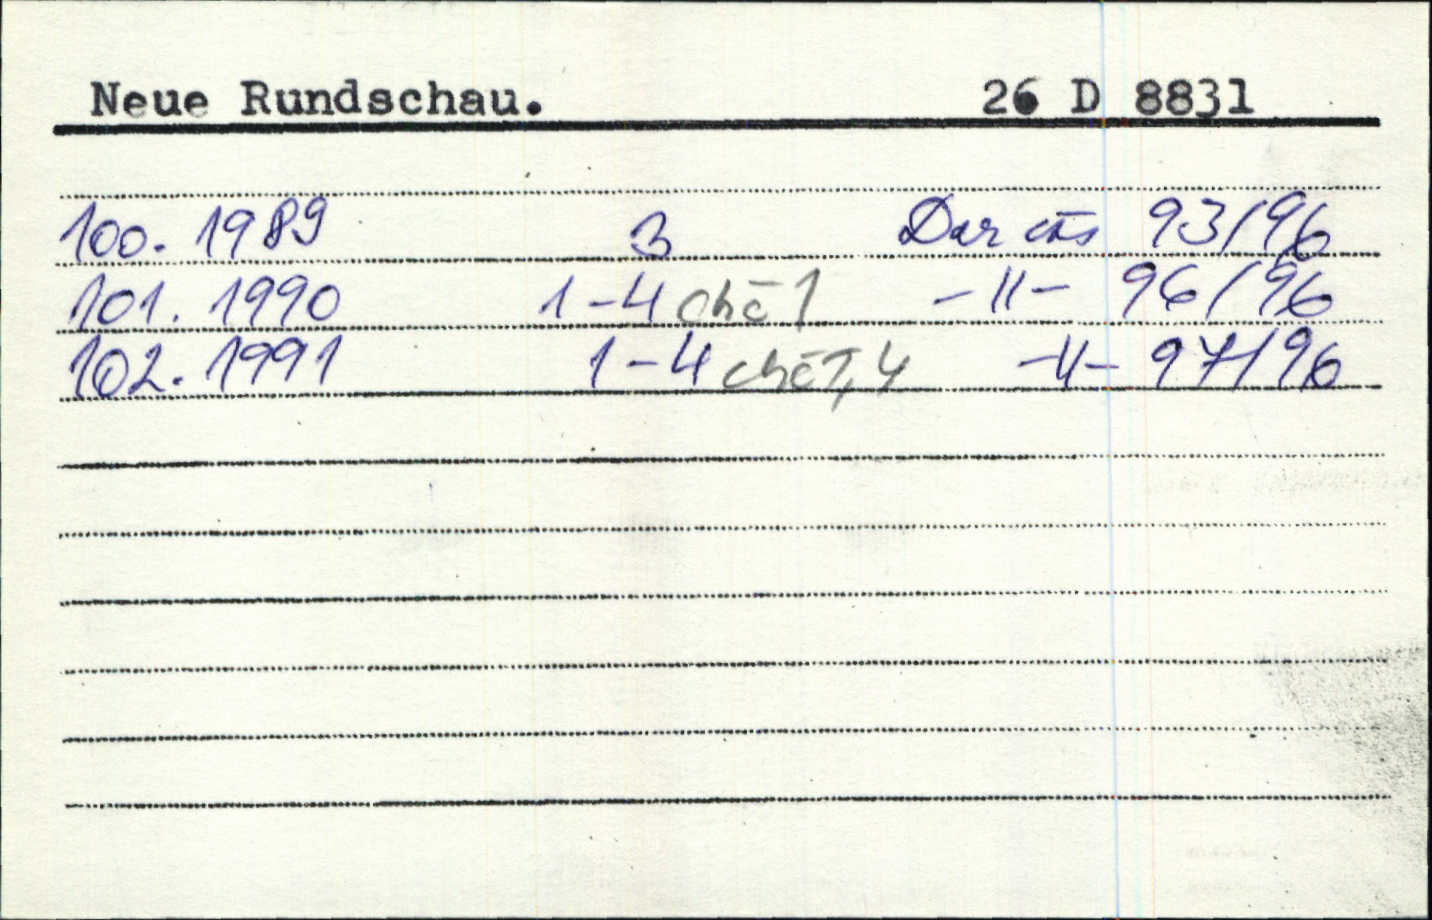 Neue Rundschau. 26 D 8831
100. 1989 3 Dar čás 93/96
101. 1990 1-4 chč 1 -11- 96/96
102. 1991 1-4 chč 1, 4 -11- 97/96